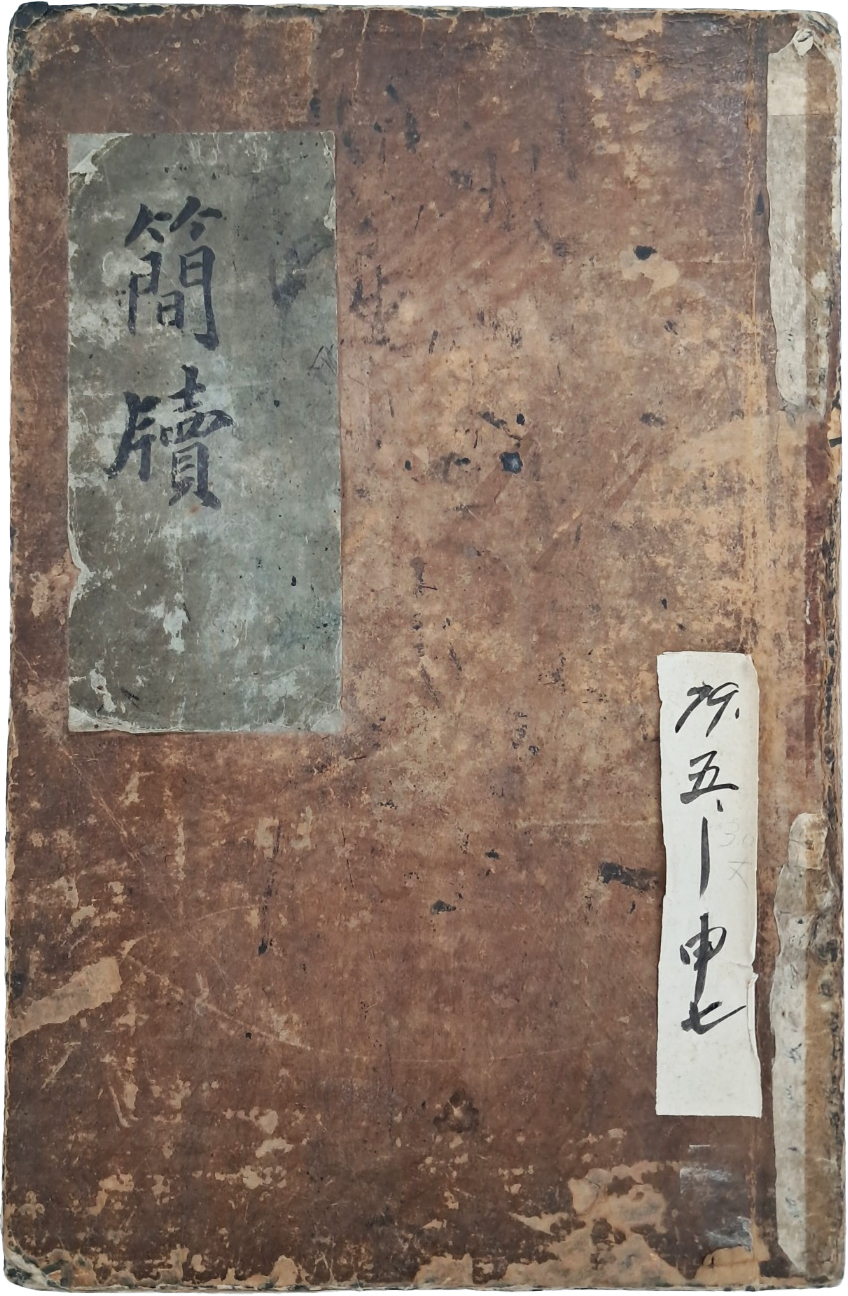 簡牘
79.五、一申七